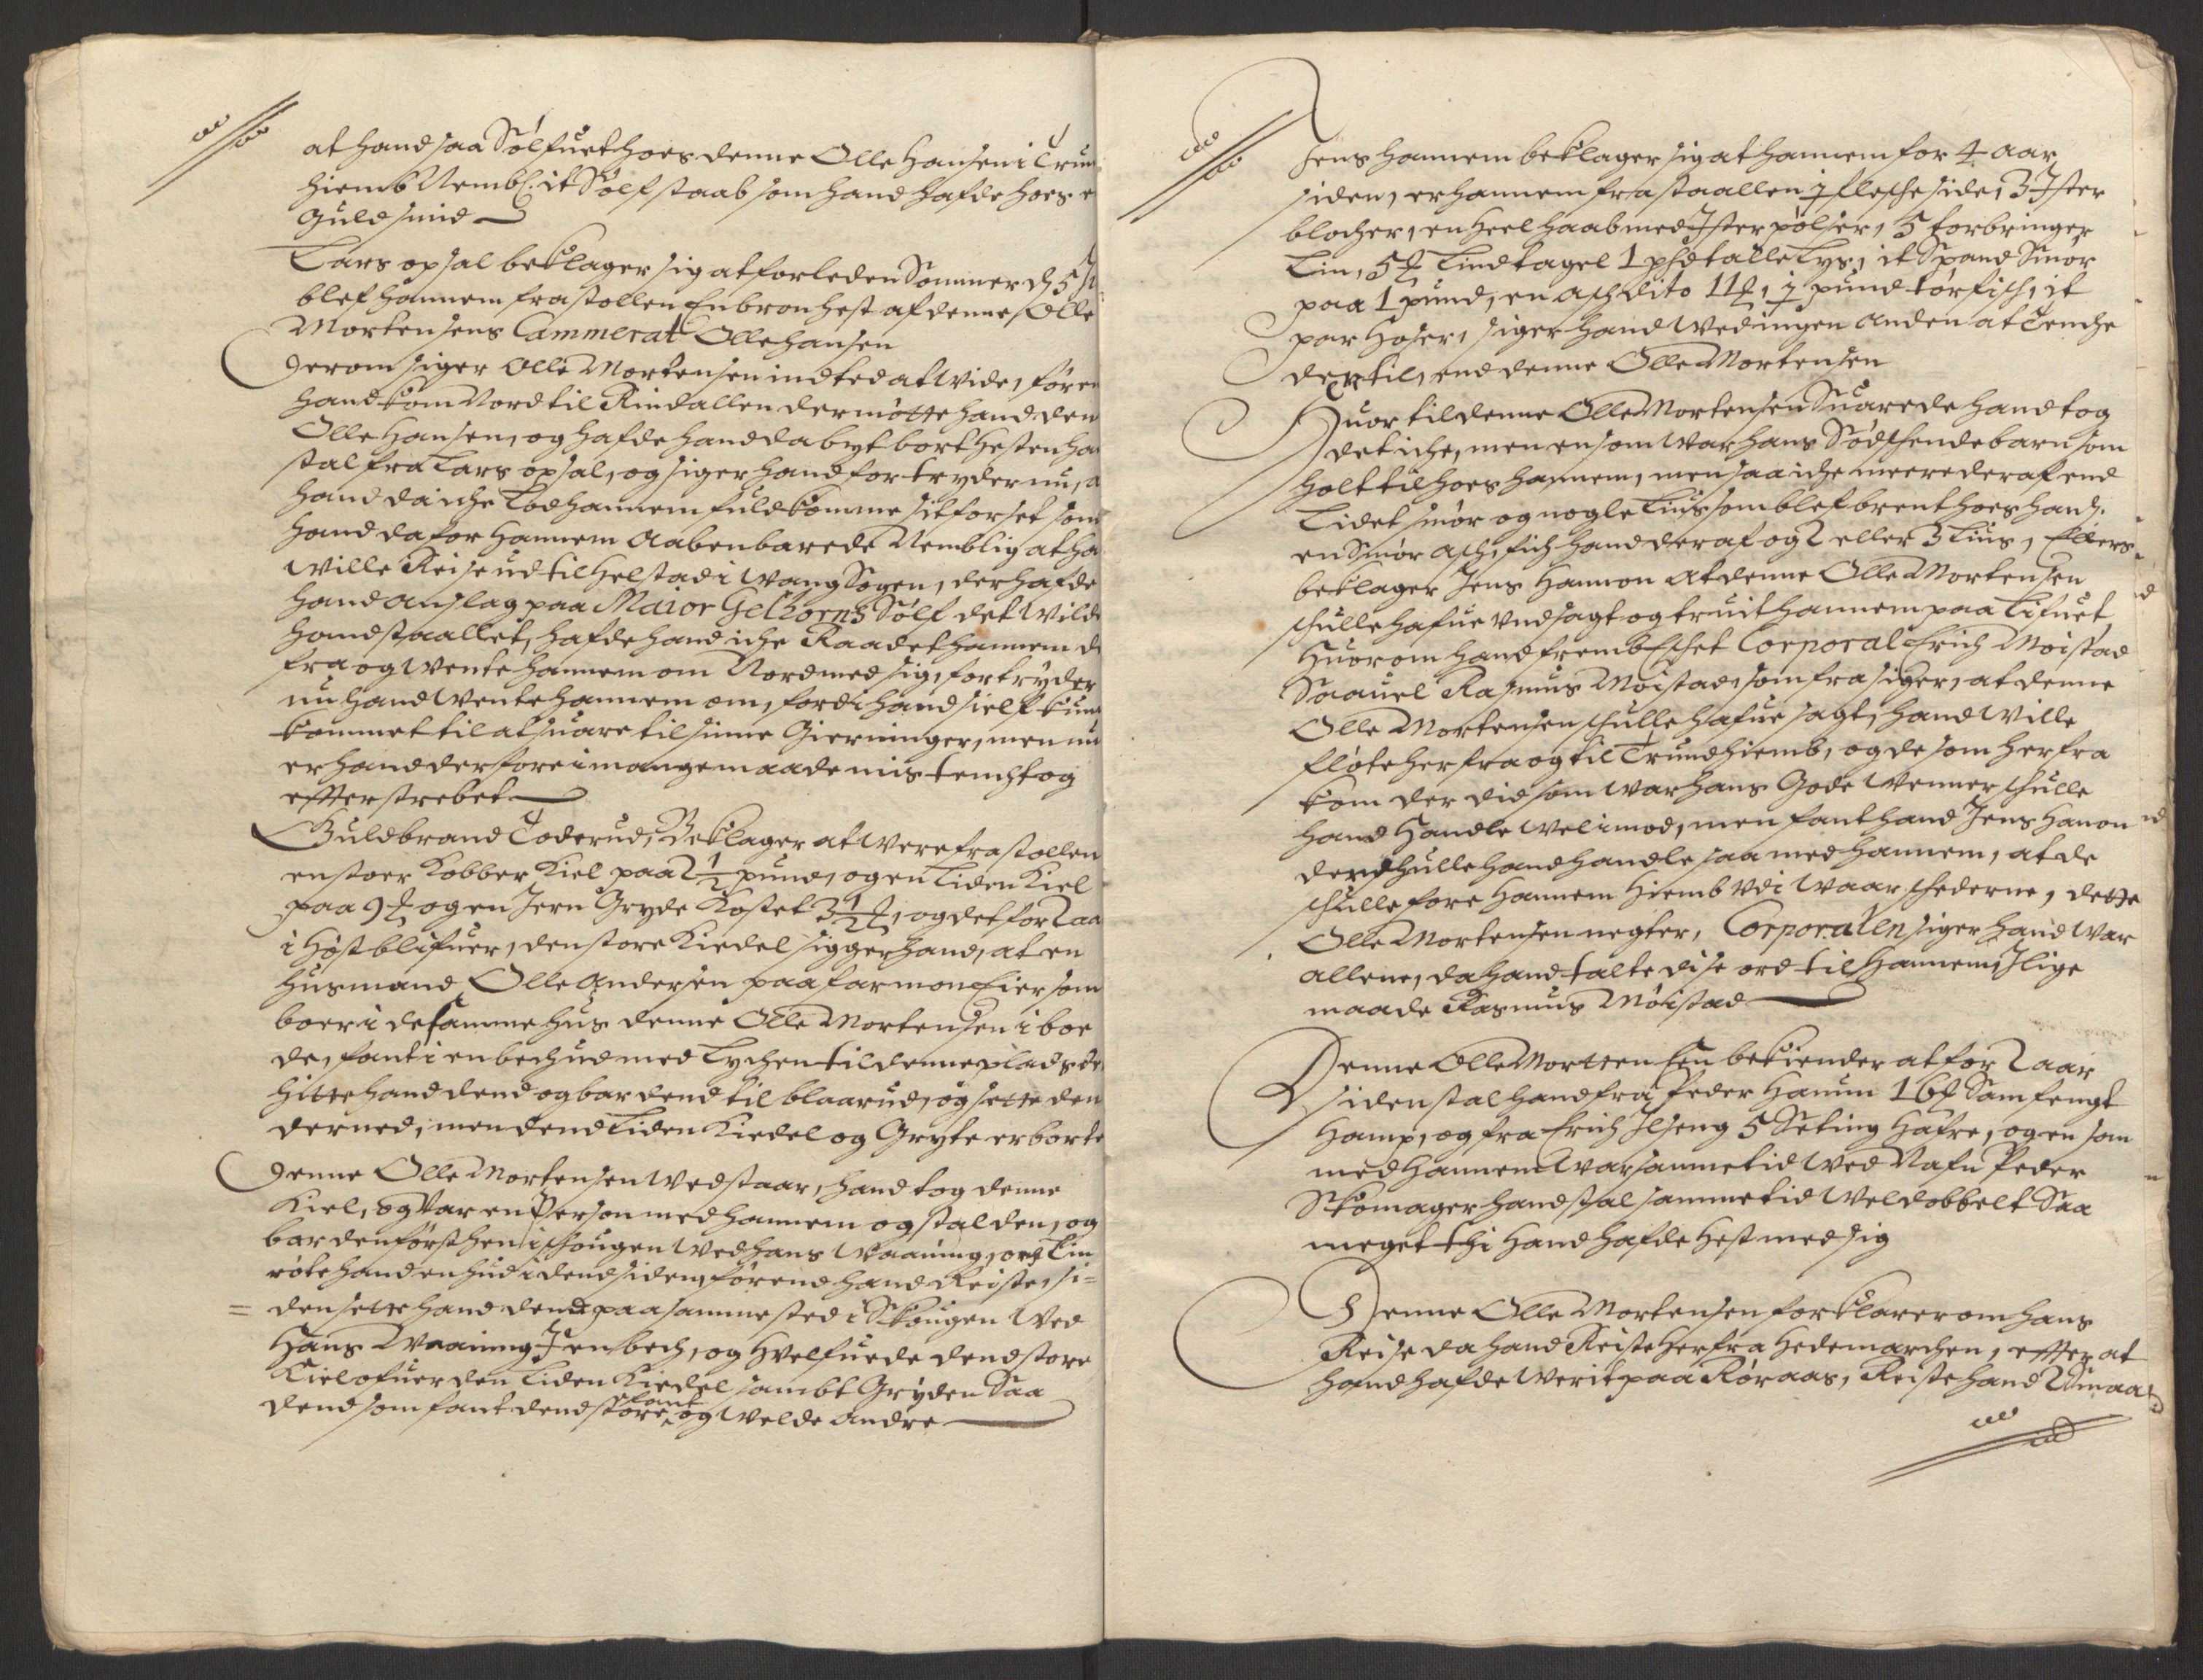 at hand saa Sølfuet hoes denne Olle Hansen i Trun
hiemb Nembl: it Sølf staab som hand hafde hoes e
Guldsmid
Lars opsal beklager sig at forleden Sommer
blef hannem frastollen En bron hest af denne Olle
Mortensens Cammerat Olle Hansen
Herom siger Olle Mortensen indted at wide, føren
hand kom Nord til Rindallen der mötte hand den
Olle Hansen, og hafde hand da byt bort Hesten ha
stal fra Lars opsal, og siger hand fortryder nu, a
hand da iche Lod hannem fuldkomme sit forset som
hand da for Hannem Aabenbarede Nemblig at ha
wille Reise ud til Helstad i Wang Sogen, der hafde
hand anslag paa Maior Gelhorns Sølf det wilde
hand staallet, hafde hand iche Raadet hannem d
fra og wente hannem om Nord med sig, fortryder
nu hand wente hannem om, fordi hand sielf kun
kommet til at suare til sinne Gierninger, men nu
er hand derfore i mange maade mistencht og
efterstrebet
Guldbrand Toderud, Beklager at were frastollen
en stoer Kobber Kiel paa 2 1/2 pund, og en Liden Kiel
paa 9 ℔ og en Jern Gryde Kostet 3 1/2 ℔, og det for 2 aa
i Høst blifuer, den store Kiedel sigger hand, at en
husmand Olle Andersen paa farmen Eier som
boer i de samme hus denne Olle Mortensen i boe
de, fant i en bech ud med Lychen til denne plads de
hitte hand dend og bar dend til blaarud, og sette den
der ned, men dend Liden Kiedel og Gryte er borte
Denne Olle Mortensen wedstaar, hand tog denne
Kiel, og war en Person med hannem og stal den, og
bar den først hen i schougen wed hans Waaning, og Lin
røte hand en hud i dend siden, førend hand Reiste, si=
= den sette hand dend paa samme sted i Skougen wed
Hans Waaning J en bech, og Hvelfuede dend store
Kiel ofuer den Liden Kiedel sambt Gryden Saa
dend som fant dend store, fant og welde andre
Jens Hannem beklager sig at hannem for 4 aar
siden, er hannem frastaallen 1/2 flesche side, 3 Ister
blocher, en heel haab med Ister pølser, 5 forbringer
Lin, 5 ℔ Lindtagel 1 phd talle Lys, it Spand Smør
paa 1 pund, en asch dito 11 ℔, 1/2 pund tørfisch, it
par Hoser, siger hand wed ingen anden at tenche
der til, end denne Olle Mortensen
Huor til denne Olle Mortensen Suarede hand tog
det iche, men en som war hans Sødschende barn som
holt til hoes hannem, men saa iche meere der af end
Lidet smør og nogle Lius som blef brent hoes hand.
en Smør asch, fich hand der af og 2 eller 3 Lius, Ellers
beklager Jens Hannon at denne Olle Mortensen
schulle hafue Undsagt og truit hannem paa Lifuet
Huorom hand fremb Eschet Corporal Erich Moistad
Saauel Rasmus Moistad, som fra siger, at denne
Olle Mortensen schulle hafue sagt, hand wille
fløte herfra og til Trundhiemb, og de som herfra
kom der did som war hans Gode wenner schulle
hand Handle wel imod, men fant hand Jens Hanon
der schulle hand handle saa med hannem, at de
schulle føre hannem hiemb udi waar schederne, dette
Olle Mortensen negter, Corporalen siger hand war
allene, da hand talte dise ord til Hannem, Jlige
maade Rasmus Möistad
Denne Olle Mortensen bekiender at for 2 aar
siden stal hand fra Peder Hanum 16 ℔ Samfengt
Hamp, og fra Erich Ilseng 5 Seting Hafre, og en som
med hannem war samme tid wed Nafn Peder
Skomager hand stal samme tid wel dobbelt Saa
meget thi Hand hafde Hest med sig
Denne Olle Mortensen forklarer om hans
Reise da hand Reiste herfra Hedemarchen, efter at
hand hafde werit paa Røraas, Reiste hand